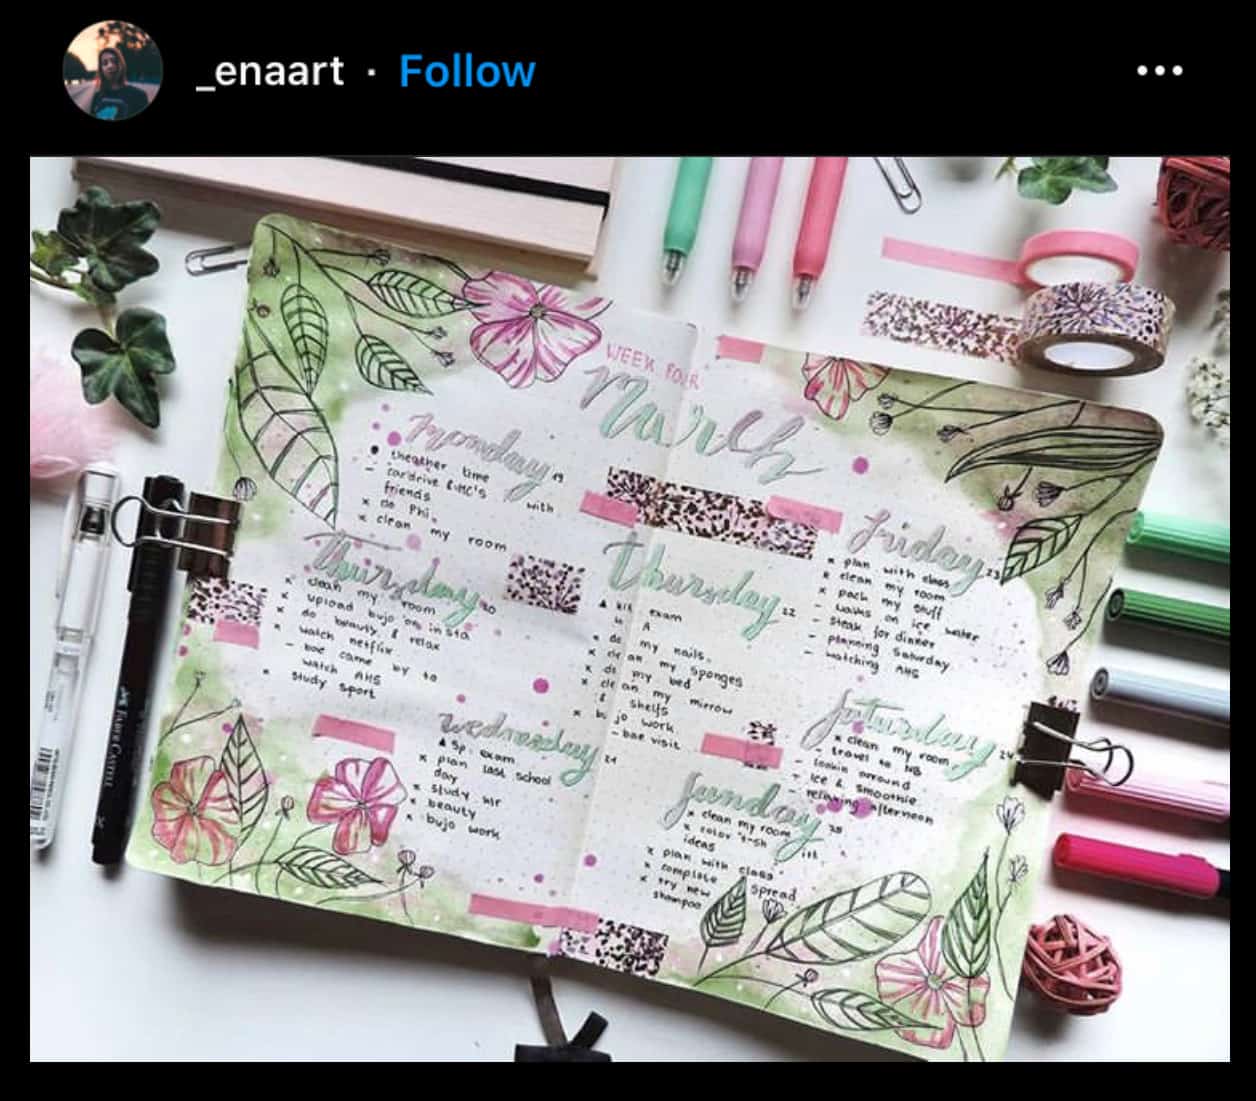 _enaart · Follow
WEEK FOUR
March
Monday 19
theather time
- cardrive & MC's with
friends
x do Phi.
x clean my room
Thursday 20
x clean my room
x upload bujo on insta
x do beauty & relax
x watch netflix
- bae came by to
watch AHS
x study sport
wednesday 21
Sp. exam
x plan last school
day
x study wr
x beauty
x bujo work
Thursday 22
exam
A
x do my nails.
x clean my sponges
x do my bed
x clean my mirrow
& shelfs
x bujo work
- bae visit
Friday 23
x plan with class
x clean my room
x pack my stuff
- walks on ice water
- steak for dinner
- planning Saturday
- watching AHS
Saturday 24
x clean my room
- travel to NB
- lookin around
- ice & smoothie
- relaxing afternoon
Sunday 25
x clean my room
x color
ideas
x plan with class
x complete spread
x try new
shampoo
FABER CASTELL